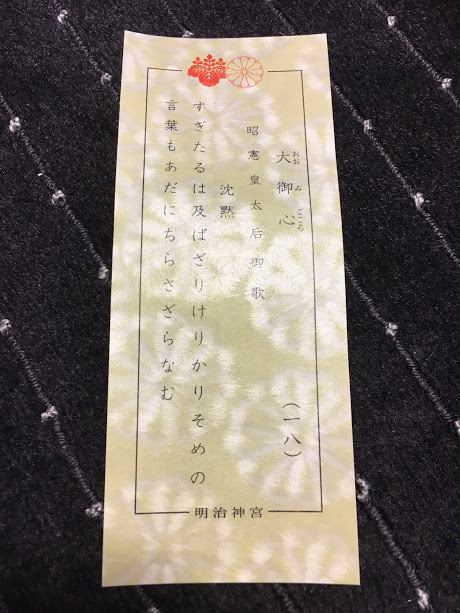 大御心
おおみごころ
(一八)
昭憲皇太后御歌
沈黙
すぎたるは及ばざりけりかりそめの
言葉もあだにちらさざらなむ
明治神宮